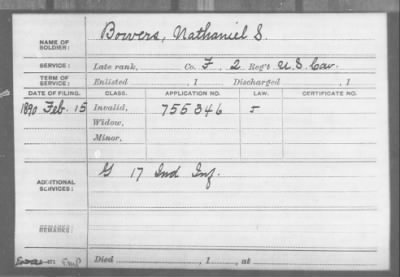 NAME OF SOLDIER: Bowers, Nathaniel S.
SERVICE: Late rank, Co. F, 2 Reg't U.S. Cav.
TERM OF SERVICE: Enlisted , 1 Discharged , 1
DATE OF FILING. CLASS. APPLICATION NO. LAW. CERTIFICATE NO.
1890 Feb. 15 Invalid, 755346
Widow,
Minor,
ADDITIONAL SERVICES: G 17 Ind Inf.
REMARKS:
Died , 1 , at